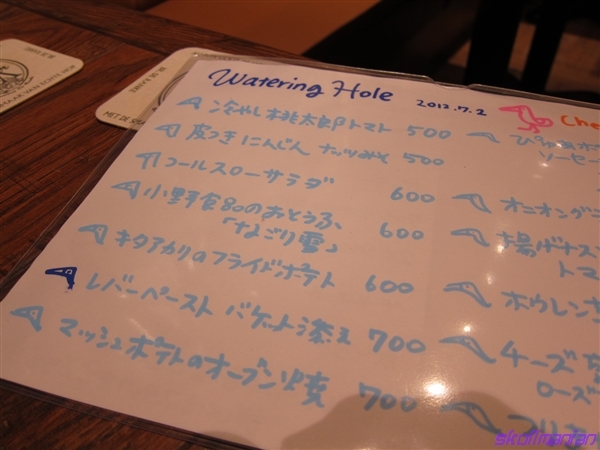 Watering Hole 2012.7.2
冷やし桃太郎トマト 500
皮つきにんじん ナッツみそ 500
コールスローサラダ 600
小野食品のおとうふ、
「なごり雪」 600
キタアカリのフライドポテト 600
レバーペースト バゲット添え 700
マッシュポテトのオーブン焼 700
Che
ソーセー
オニオング
揚げナス
トマ
ホウレン
チーズ
ローズ
MET DE S
skullmantan